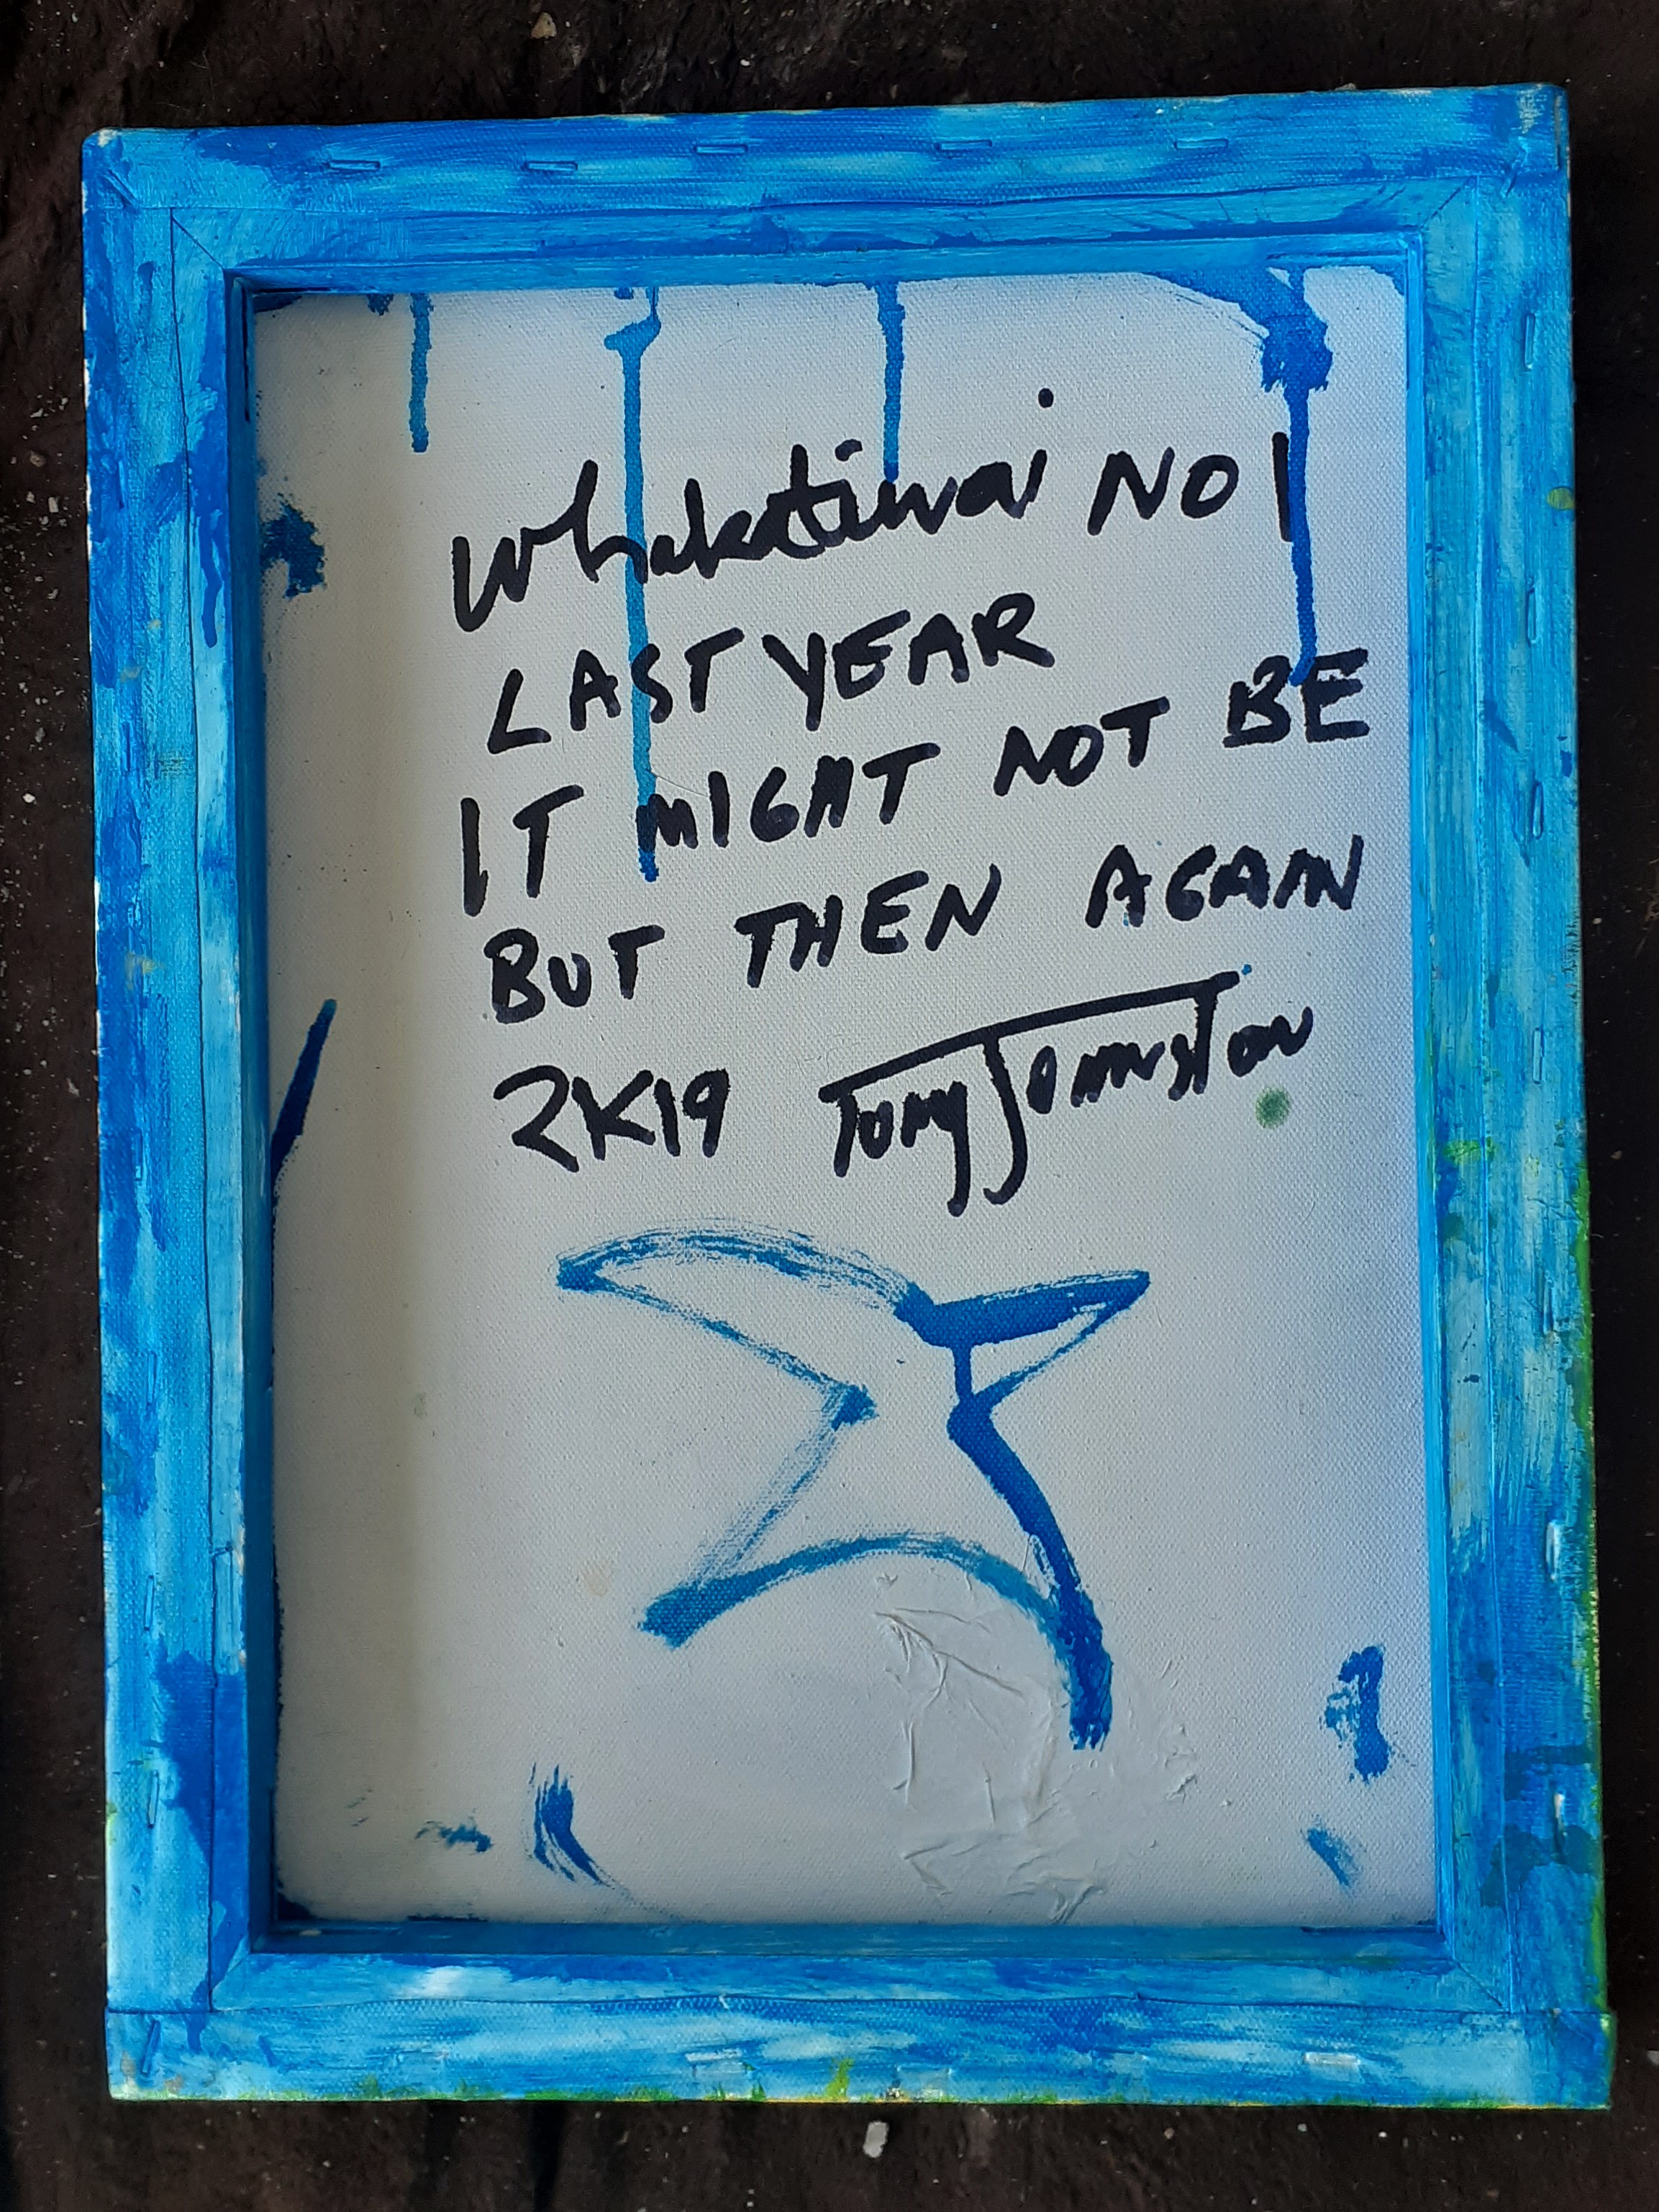 Whakatiwai NO 1
LAST YEAR
IT MIGHT NOT BE
BUT THEN AGAIN
2K19 Tony Johnston